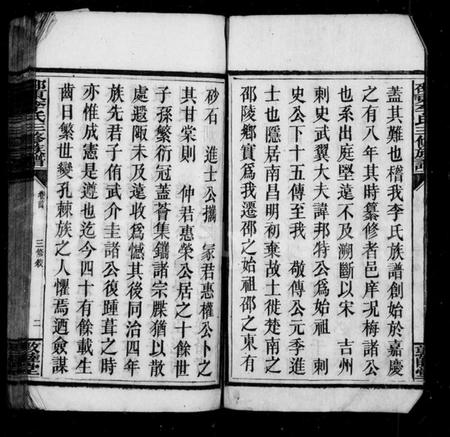 蓋其難也稽我李氏族譜創始於嘉慶
之有八年其時纂修者邑庠況梅諸公
也系出庭堅遠不及溯斷以宋　吉州
刺史武翼大夫諱邦特公為始祖　刺
史公下十五傳至我　敬傳公元季進
士也隱居南昌明初棄故土徙楚南之
邵陵鄉實為我遷邵之始祖邵之東有
砂石　進士公攜　家君惠權公卜之
其甘棠則　仲君惠榮公居之十餘世
子孫繁衍冠蓋薈集鐫諸宗牒猶以散
處遐陬未及遠收爲憾其後同治四年
族先君子侑武介圭諸公復踵葺之時
亦惟成憲是遵也迄今四十有餘載生
齒日繁世變孔棘族之人懼焉迺僉謀
邵東李氏三修族譜
卷首
三修敘
二
敦睦堂